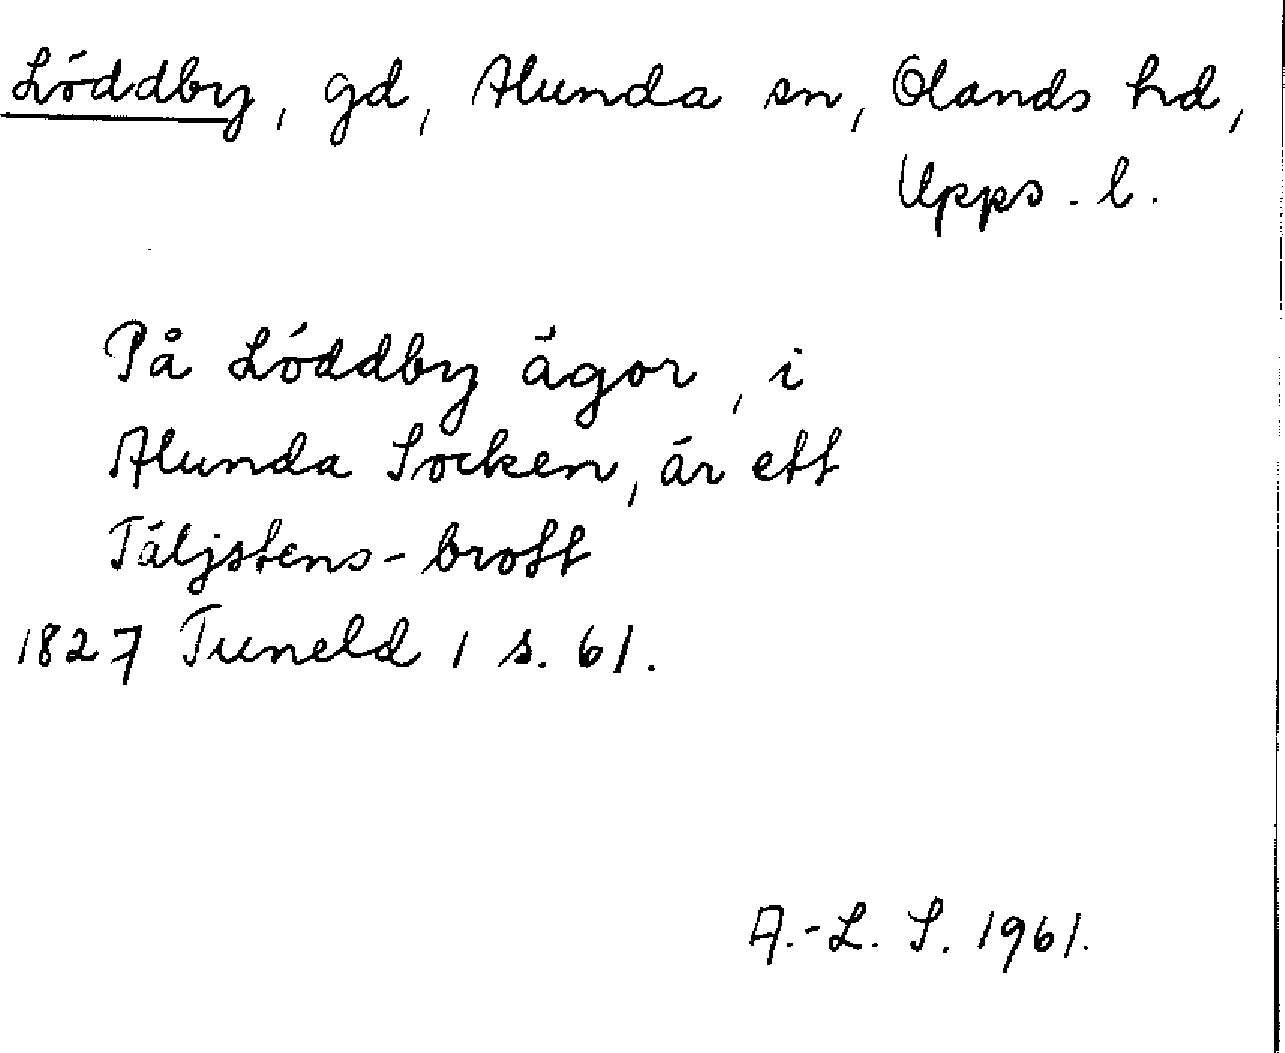 Löddby, gd, Alunda sn, Olands hd,
Upps. l.
På Löddby ägor, i
Alunda Socken, är ett
Täljstens-brott
1827 Tuneld 1 s. 61.
A.-L. S. 1961.